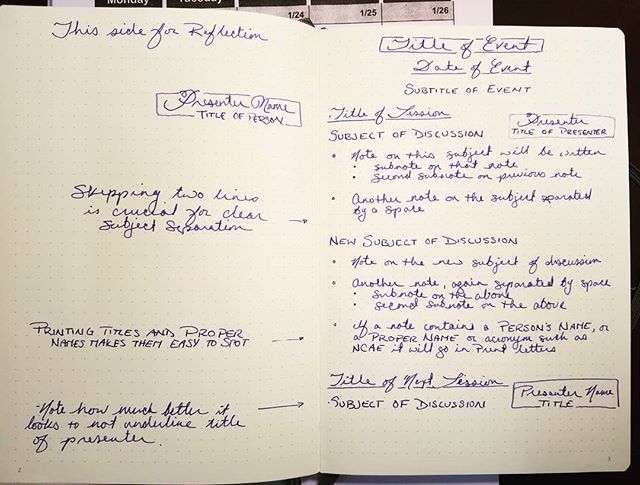 Monday Tuesday
1/24 1/25 1/26
This side for Reflection
Presenter Name
TITLE OF PERSON
Skipping two lines
is crucial for clear
Subject Separation
PRINTING TITLES AND PROPER
NAMES MAKES THEM EASY TO SPOT
Note how much better it
looks to not underline title
of presenter.
2
Title of Event
Date of Event
SUBTITLE OF EVENT
Title of Session
Presenter
TITLE OF PRESENTER
SUBJECT OF DISCUSSION
• Note on this subject will be written
• subnote on that note
• second subnote on previous note
• Another note on the subject separated
by a space
NEW SUBJECT OF DISCUSSION
• Note on the new subject of discussion
• Another note, again separated by space
• subnote on the above
• second subnote on the above
• If a note contains a PERSON'S NAME, or
a PROPER NAME or acronym such as
NCAE it will go in Print letters
Title of Next Session
Presenter Name
TITLE
SUBJECT OF DISCUSSION
3